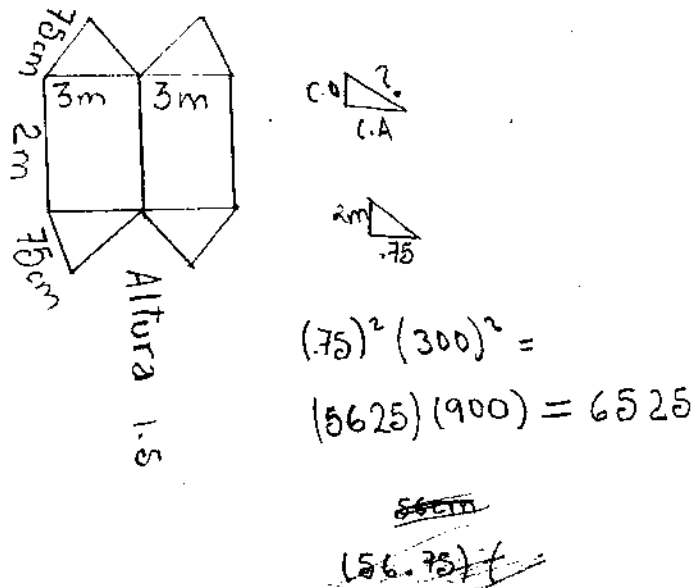 75cm
3m 3m
2m
75cm
Altura 1.5
C.O ?
C.A
2m
.75
(.75)² (300)² =
(5625) (900) = 6525
56cm
(56.75) (